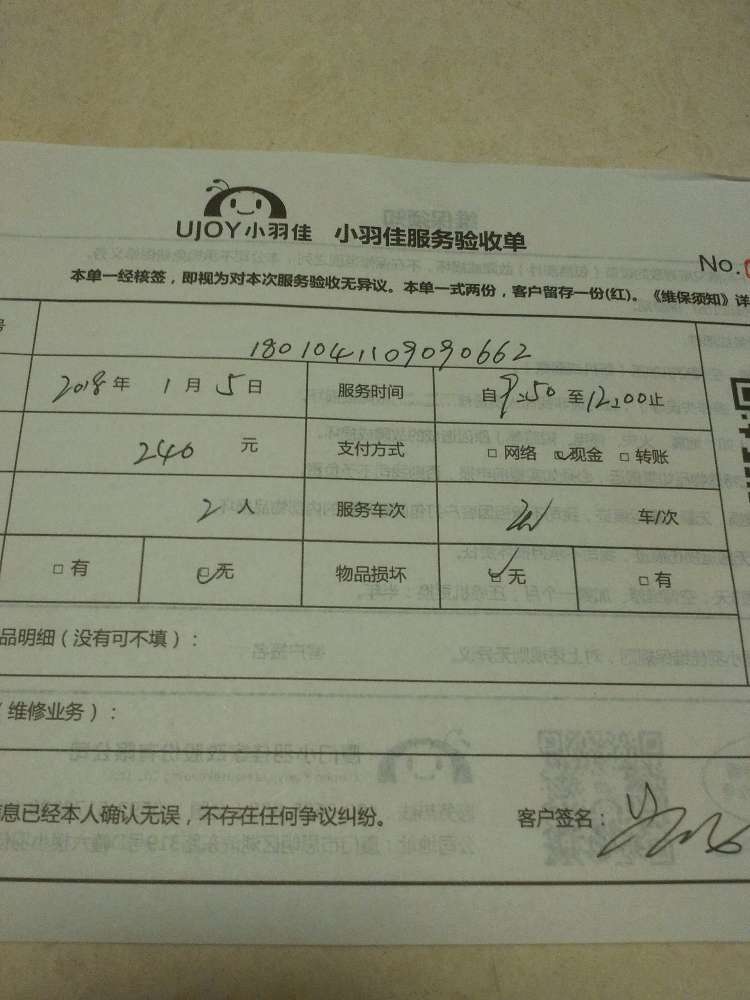 UJOY小羽佳 小羽佳服务验收单
No.
本单一经核签，即视为对本次服务验收无异议。本单一式两份，客户留存一份(红)。《维保须知》详
号 1801041109090662
2018年 1月5日 服务时间 自9:50至12:00止
240 元 支付方式 □网络 ☑现金 □转账
2人 服务车次 车/次
□有 ☑无 物品损坏 ☑无 □有
品明细（没有可不填）：
（维修业务）：
信息已经本人确认无误，不存在任何争议纠纷。 客户签名：